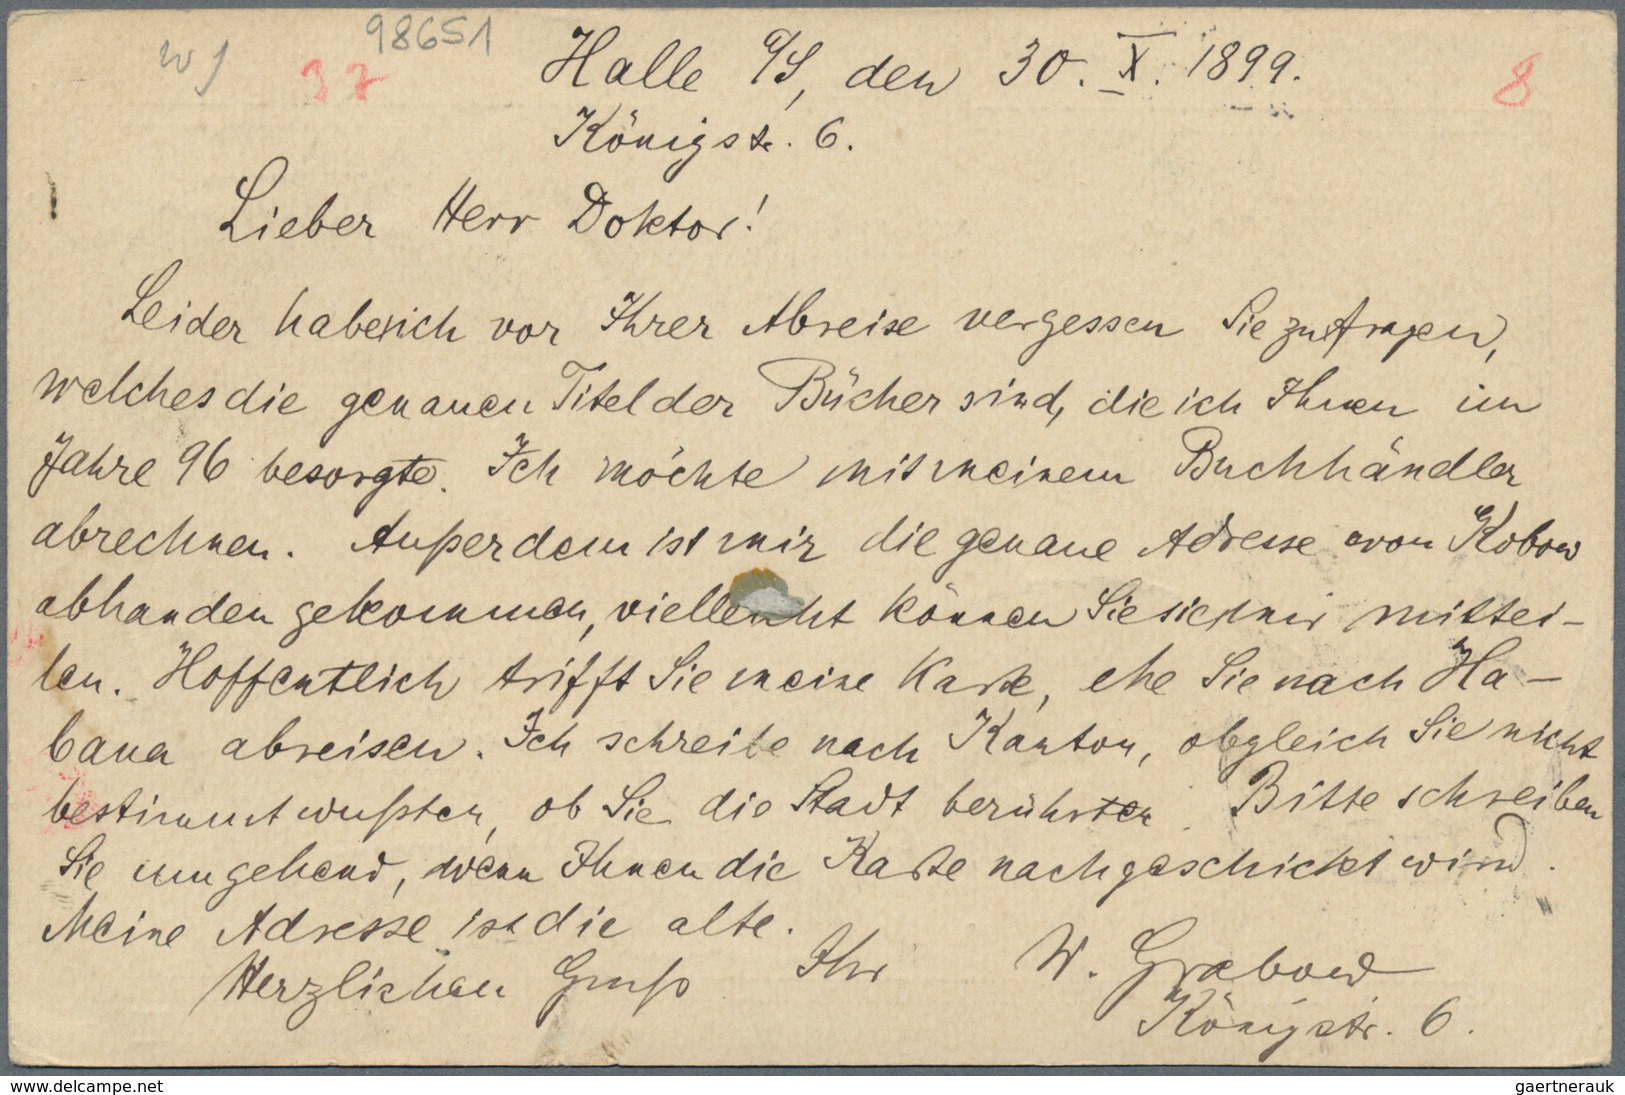 98651
37
8
Halle a/S, den 30. X. 1899.
Königstr. 6.
Lieber Herr Doktor!
Leider habe ich vor Ihrer Abreise vergessen Sie zu fragen,
welches die genauen Titel der Bücher sind, die ich Ihnen im
Jahre 96 besorgte. Ich möchte mit meinem Buchhändler
abrechnen. Außerdem ist mir die genaue Adresse von Kobow
abhanden gekommen, vielleicht können Sie sie mir mittei-
len. Hoffentlich trifft Sie meine Karte, ehe Sie nach Ha-
bana abreisen. Ich schreibe nach Kanton, obgleich Sie nicht
bestimmt wußten, ob Sie die Stadt berührten. Bitte schreiben
Sie umgehend, wenn Ihnen die Karte nachgeschickt wird.
Meine Adresse ist die alte.
Herzlichen Gruß Ihr W. Grabow
Königstr. 6.
www.delcampe.net
gaertnerauk